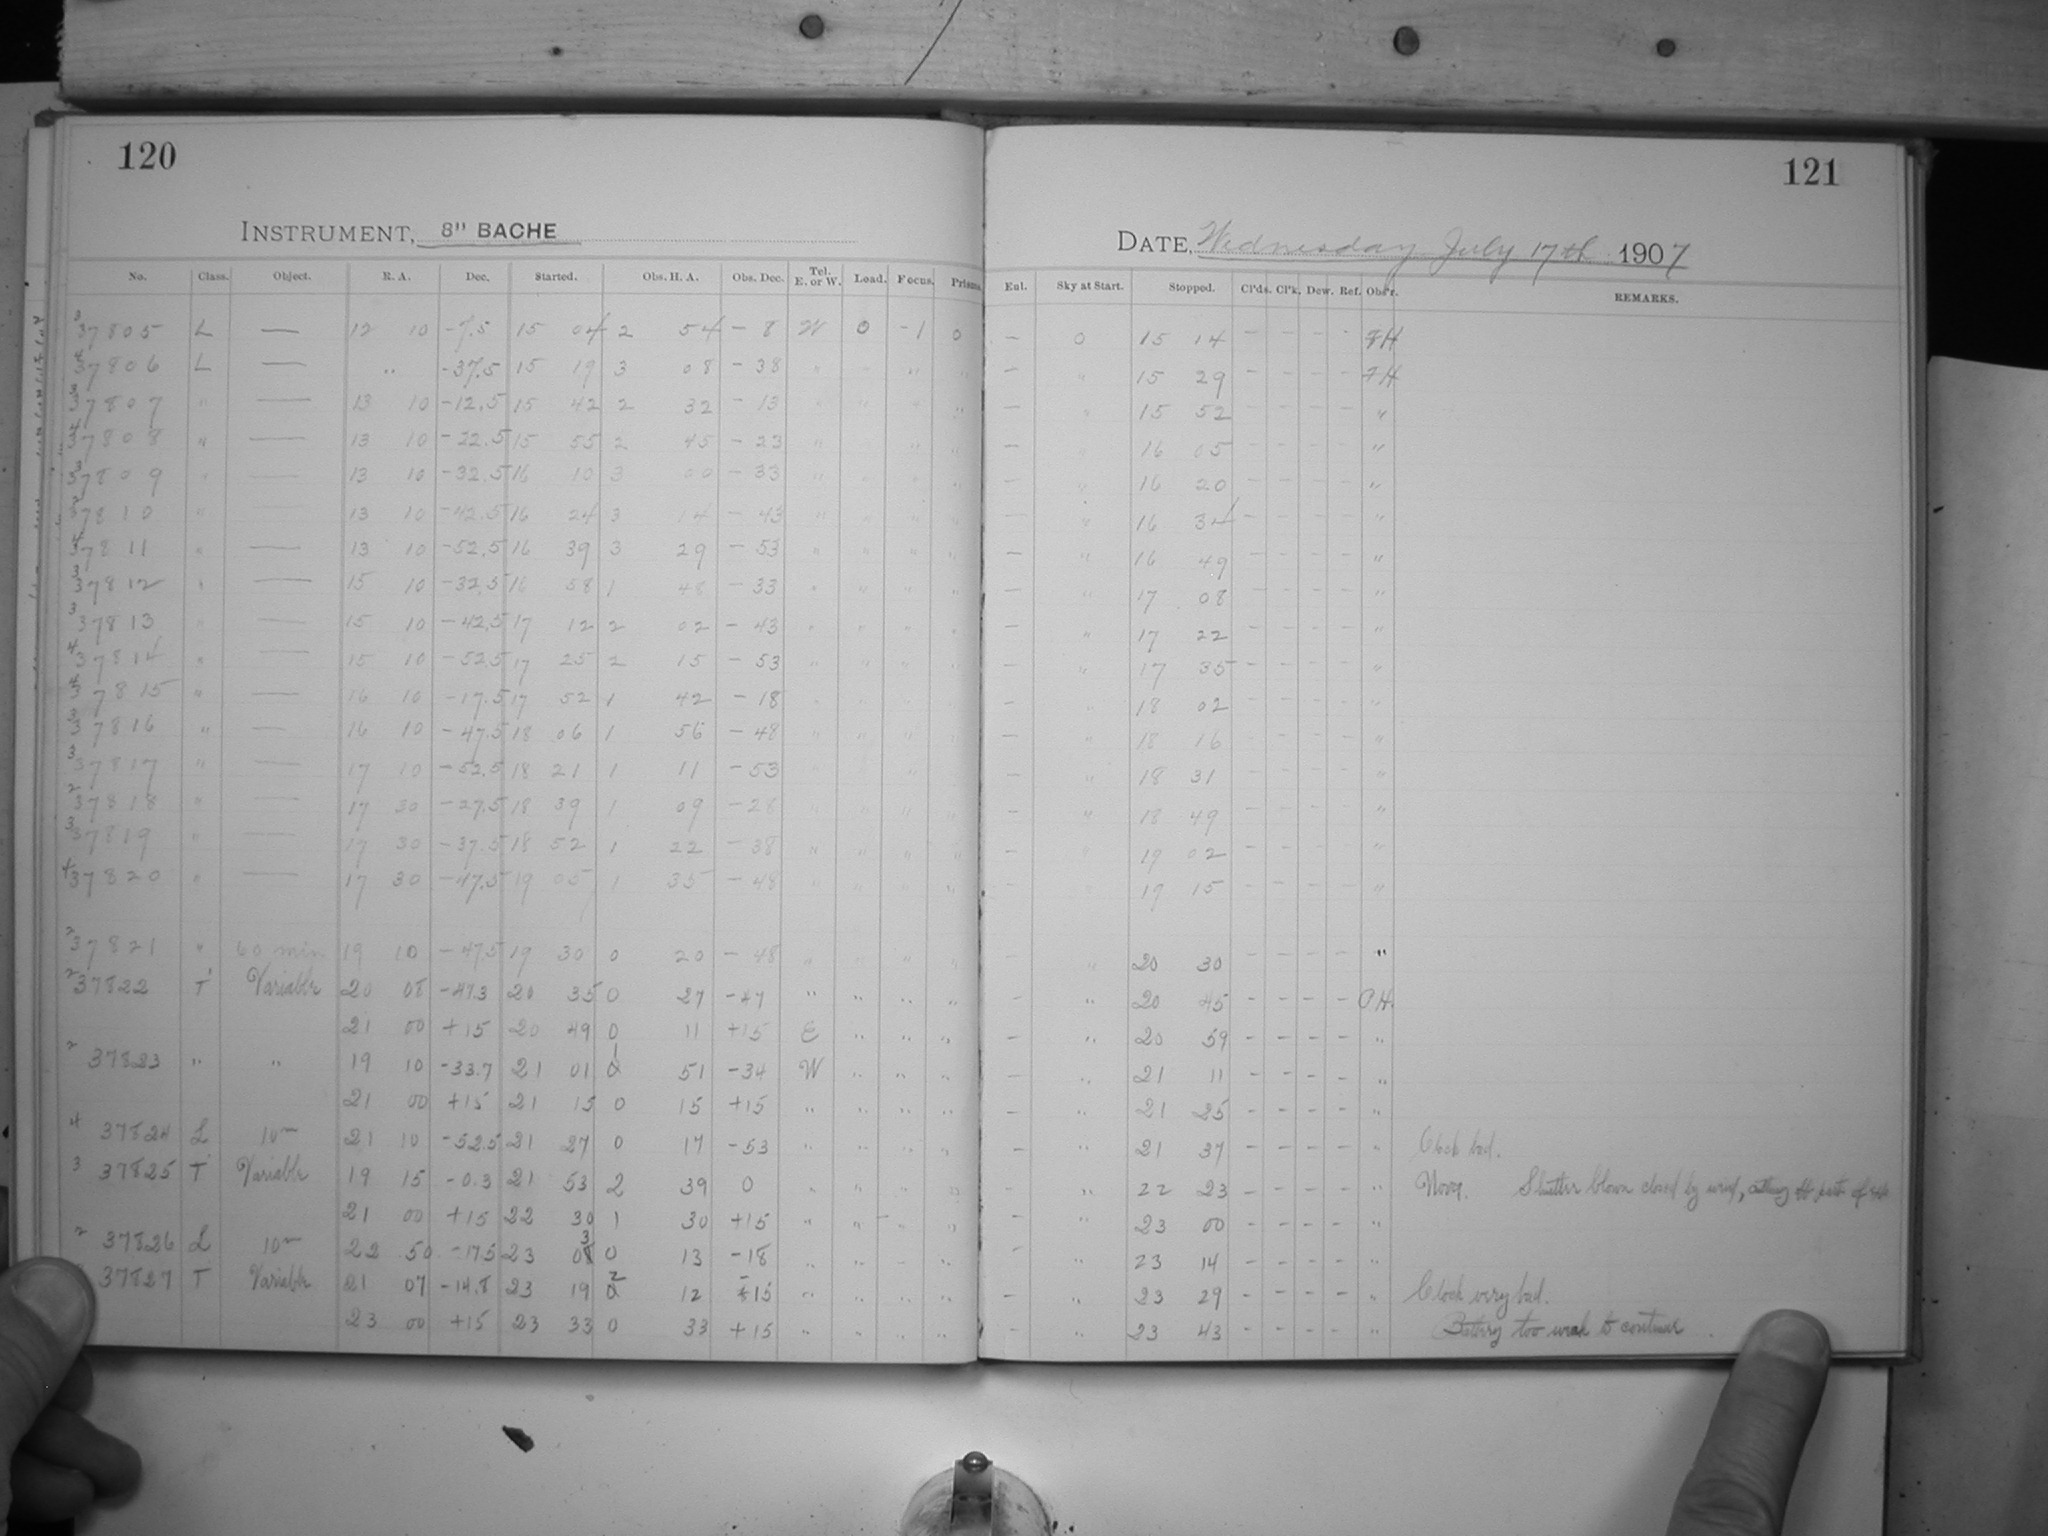 120
121
INSTRUMENT, 8" BACHE
DATE, Wednesday July 17th 1907
No. Class. Object. R. A. Dec. Started. Obs. H. A. Obs. Dec. Tel. E. or W. Load. Focus. Prisms. Eul. Sky at Start. Stopped. Cl'ds. Cl'k. Dew. Ref. Obs'r. REMARKS.
3 37805 L — 12 10 -7.5 15 04 2 54 - 8 W 0 -1 0 — 0 15 14 - - - - FH
37806 L — " -37.5 15 19 3 08 - 38 " " " — " 15 29 - - - - FH
37807 " — 13 10 -12.5 15 42 2 32 - 13 " " " " — " 15 52 - - - - "
37808 " — 13 10 -22.5 15 55 2 45 - 23 " " " " — " 16 05 - - - - "
37809 " — 13 10 -32.5 16 10 3 00 - 33 " " " " — " 16 20 - - - - "
37810 " — 13 10 -42.5 16 24 3 14 - 43 " " " " — " 16 34 - - - - "
37811 " — 13 10 -52.5 16 39 3 29 - 53 " " " " — " 16 49 - - - - "
3 37812 " — 15 10 -32.5 16 58 1 48 - 33 " " " " — " 17 08 - - - - "
3 37813 " — 15 10 -42.5 17 12 2 02 - 43 " " " " — " 17 22 - - - - "
4 37814 " — 15 10 -52.5 17 25 2 15 - 53 " " " " — " 17 35 - - - - "
37815 " — 16 10 -17.5 17 52 1 42 - 18 " " " " — " 18 02 - - - - "
37816 " — 16 10 -47.5 18 06 1 56 - 48 " " " " — " 18 16 - - - - "
3 37817 " — 17 10 -52.5 18 21 1 11 - 53 " " " " — " 18 31 - - - - "
2 37818 " — 17 30 -27.5 18 39 1 09 - 28 " " " " — " 18 49 - - - - "
3 37819 " — 17 30 -37.5 18 52 1 22 - 38 " " " " — " 19 02 - - - - "
4 37820 " — 17 30 -47.5 19 05 1 35 - 48 " " " " 19 15 - - - - "
2 37821 " 60 min 19 10 -47.5 19 30 0 20 - 48 " " " " " 20 30 - - - - "
2 37822 T Variable 20 08 -47.3 20 35 0 27 -47 " " " " - " 20 45 - - - -
21 00 +15 20 49 0 11 +15 E " " " - " 20 59 - - - - "
2 37823 " " 19 10 -33.7 21 01 1 51 -34 W " " " - " 21 11 - - - - "
21 00 +15 21 15 0 15 +15 " " " " - " 21 25 - - - - "
4 37824 L 10m 21 10 -52.5 21 27 0 17 -53 " " " " - " 21 37 - - - - " Clock bad.
3 37825 T Variable 19 15 -0.3 21 53 2 39 0 " " " " - " 22 23 - - - - " Shutter blown closed by wind, cutting off part of
21 00 +15 22 30 1 30 +15 " " " " - " 23 00 - - - - "
2 37826 L 10m 22 50 -17.5 23 03 0 13 -18 " " " " - " 23 14 - - - - "
37827 T Variable 21 07 -14.8 23 19 2 12 -15 " " " " - " 23 29 - - - - " Clock very bad.
23 00 +15 23 33 0 33 +15 " " " " - " 23 43 - - - - " Battery too weak to continue